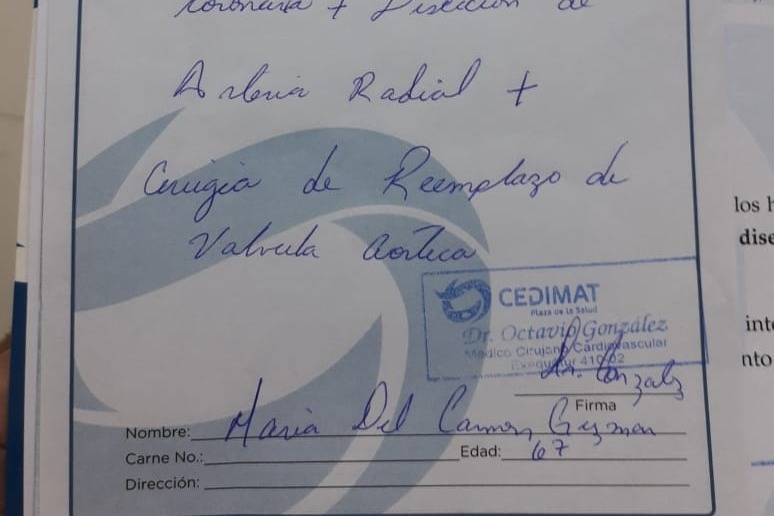 Coronaria + Disección de
Arteria Radial +
Cirugia de Reemplazo de
Valvula Aortica
CEDIMAT
Plaza de la Salud
Dr. Octavio González
Médico Cirujano Cardiovascular
Exequatur 410-02
Dr. Gonzalz
Firma
Nombre: Maria Del Carmen Guzman
Carne No.: Edad: 67
Dirección:
los h
dise
inte
nto